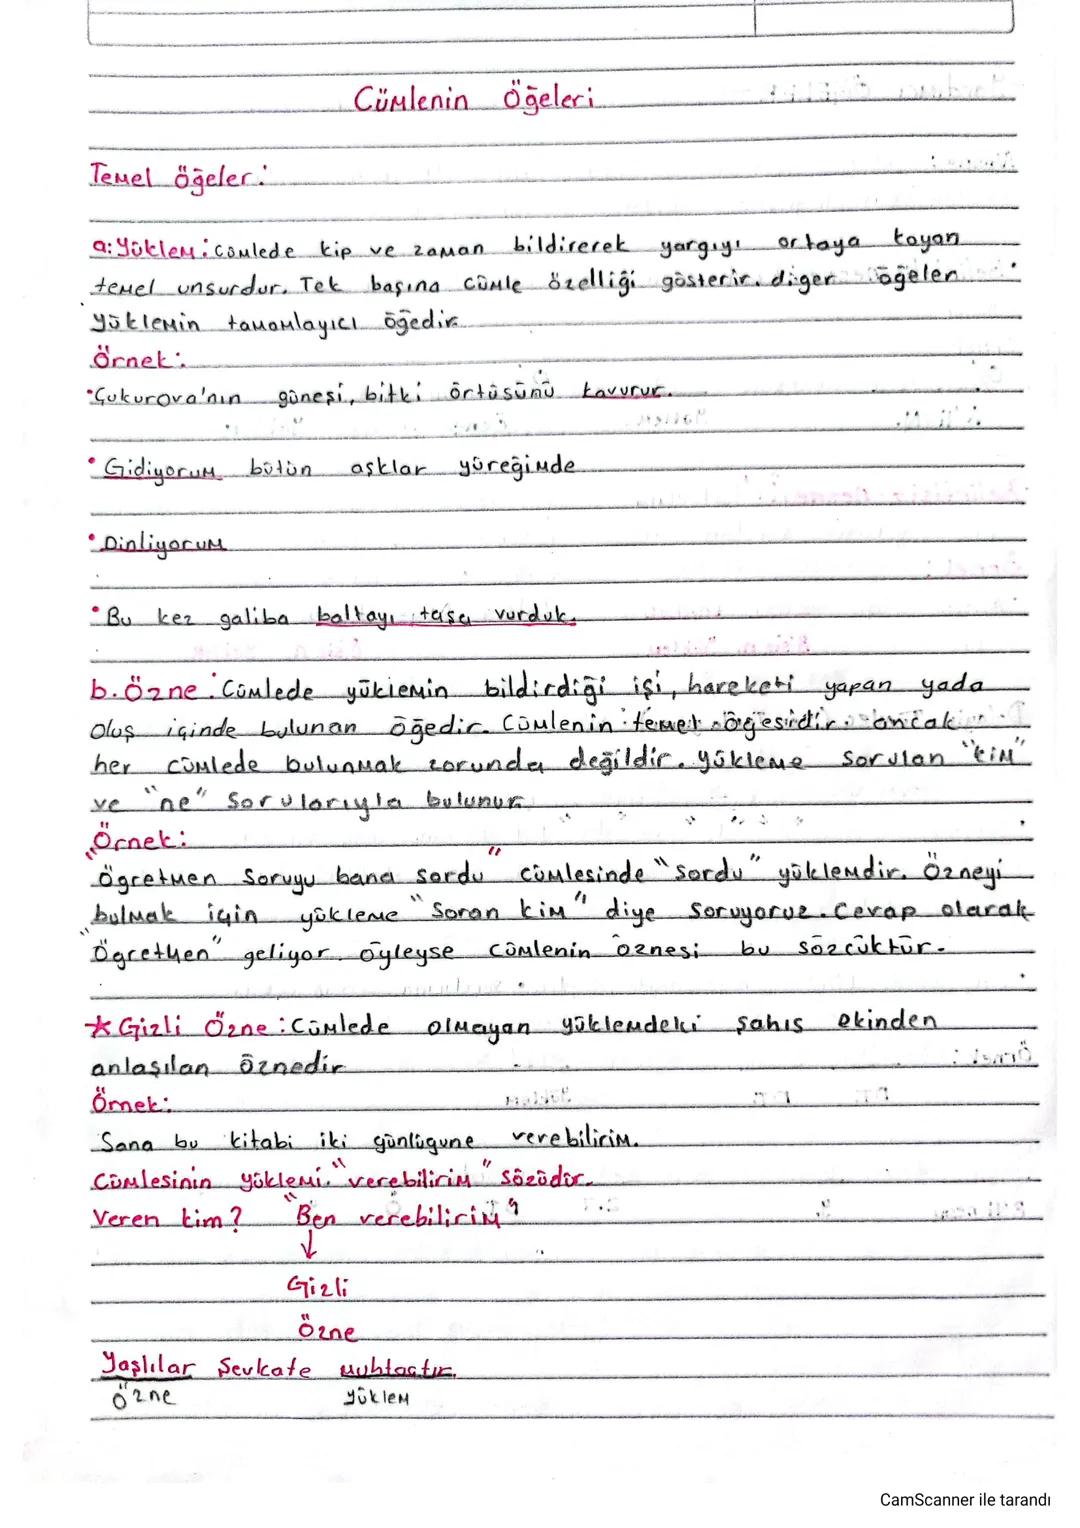 Cümlenin Öğeleri
Temel öğeler:
a: Yüklem: Cümlede kip ve zaman bildirerek yargıyı ortaya koyan
temel unsurdur. Tek başına cümle özelliği gösterir. diger öğeler
yüklemin tamamlayıcı öğedir.
Örnek:
•Çukurova'nın güneşi, bitki örtüsünü kavurur.
•Gidiyorum bütün aşklar yüreğimde
•Dinliyorum
•Bu kez galiba baltayı taşa vurduk.
b. Özne: Cümlede yüklemin bildirdiği işi, hareketi yapan yada
oluş içinde bulunan öğedir. Cümlenin temel öğesidir. ancak
her cümlede bulunmak zorunda değildir. yükleme sorulan "kim"
ve "ne" sorularıyla bulunur.
Örnek:
"Ögretmen soruyu bana sordu" cümlesinde "sordu" yüklemdir. Özneyi
bulmak için yükleme "Soran kim" diye soruyoruz. Cevap olarak
"Ögretmen" geliyor öyleyse cümlenin öznesi bu sözcüktür.
*Gizli Özne: Cümlede olmayan yüklemdeki şahıs ekinden
anlaşılan öznedir
Örnek:
Sana bu kitabi iki günlügune verebilirim.
Cümlesinin yüklemi "verebilirim" sözüdür.
Veren kim? "Ben verebilirim"
↓
Gizli
Özne
Yaşlılar Şevkate muhtaçtır.
Özne yüklem
CamScanner ile tarandı